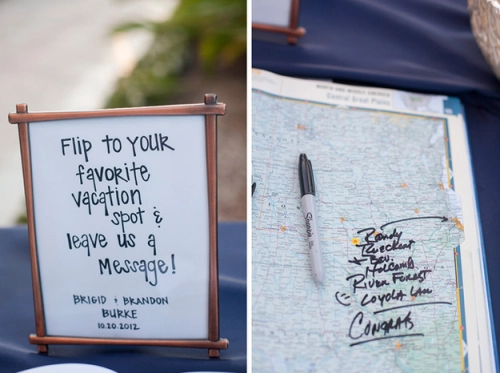 Flip to your
favorite
vacation
spot &
leave us a
Message!
BRIGID + BRANDON
BURKE
10.20.2012
Central Great Plains
Sharpie
Randy
Rueckert
Bev
Holcomb
River Forest
Loyola Law
Congrats